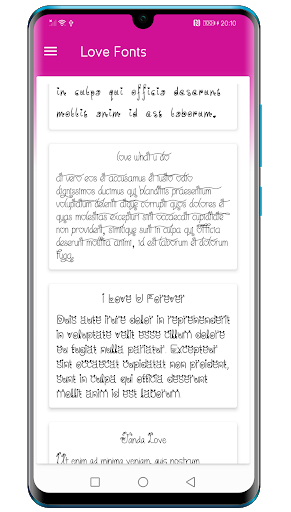 20:10
Love Fonts
in culpa qui officia deserunt
mollit anim id est laborum.
love what u do
at vero eos et accusamus et iusto odio
dignissimos ducimus qui blanditiis praesentium
voluptatum deleniti atque corrupti quos dolores et
quas molestias excepturi sint occaecati cupiditate
non provident, similique sunt in culpa qui officia
deserunt mollitia animi, id est laborum et dolorum
fuga.
I Love U Forever
Duis aute irure dolor in reprehenderit
in voluptate velit esse cillum dolore
eu fugiat nulla pariatur. Excepteur
sint occaecat cupidatat non proident,
sunt in culpa qui officia deserunt
mollit anim id est laborum.
Janda Love
Ut enim ad minima veniam, quis nostrum